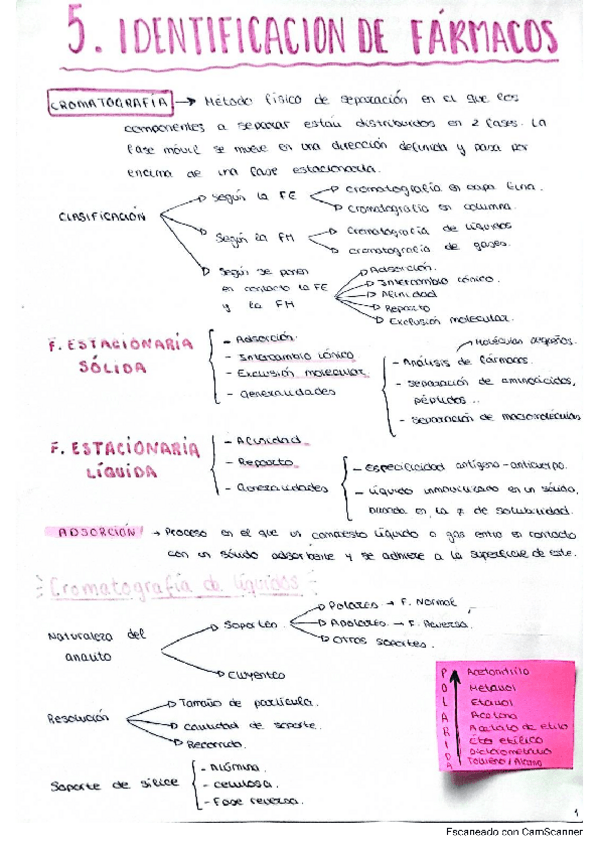 5. IDENTIFICACION DE FÁRMACOS
CROMATOGRAFÍA → Método físico de separación en el que los
componentes a separar están distribuidos en 2 fases. La
fase móvil se mueve en una dirección definida y pasa por
encima de una fase estacionaria.
CLASIFICACIÓN
Según la FE
Cromatografía en capa fina.
Cromatografía en columna.
Según la FM
Cromatografía de líquidos
cromatografía de gases.
Según se ponen
en contacto la FE
y la FM
Adsorción.
Intercambio iónico.
Afinidad
Reparto
Exclusión molecular.
F. ESTACIONARÍA
SÓLIDA
- Adsorción.
- Intercambio iónico
- Exclusión molecular
- Generalidades
Moléculas orgánicas.
- Análisis de fármacos.
- Separación de aminoácidos,
péptidos ..
- Separación de macromoléculas
F. ESTACIONARÍA
LÍQUIDA
- Afinidad
- Reparto
- Generalidades
- Especificidad antígeno-anticuerpo.
- Líquido inmovilizado en un sólido,
en la ≠ de solubilidad.
ADSORCIÓN → Proceso en el que un compuesto líquido o gas entra en contacto
con un sólido adsorbente y se adhiere a la superficie de este.
Cromatografía de líquidos
Naturaleza del
analito
Soportes
Polares → F. Normal
Apolares → F. Reversa.
Otros soportes.
Eluyente
Resolución
Tamaño de partícula.
Cantidad de soporte.
Recorrido.
Soporte de sílice
- Alúmina.
- Celulosa.
- Fase reversa.
POLARIDA
Acetonitrilo
Metanol
Etanol
Acetona
Acetato de etilo
Éter etílico
Diclorometano
Tolueno / Alcano
1
Escaneado con CamScanner